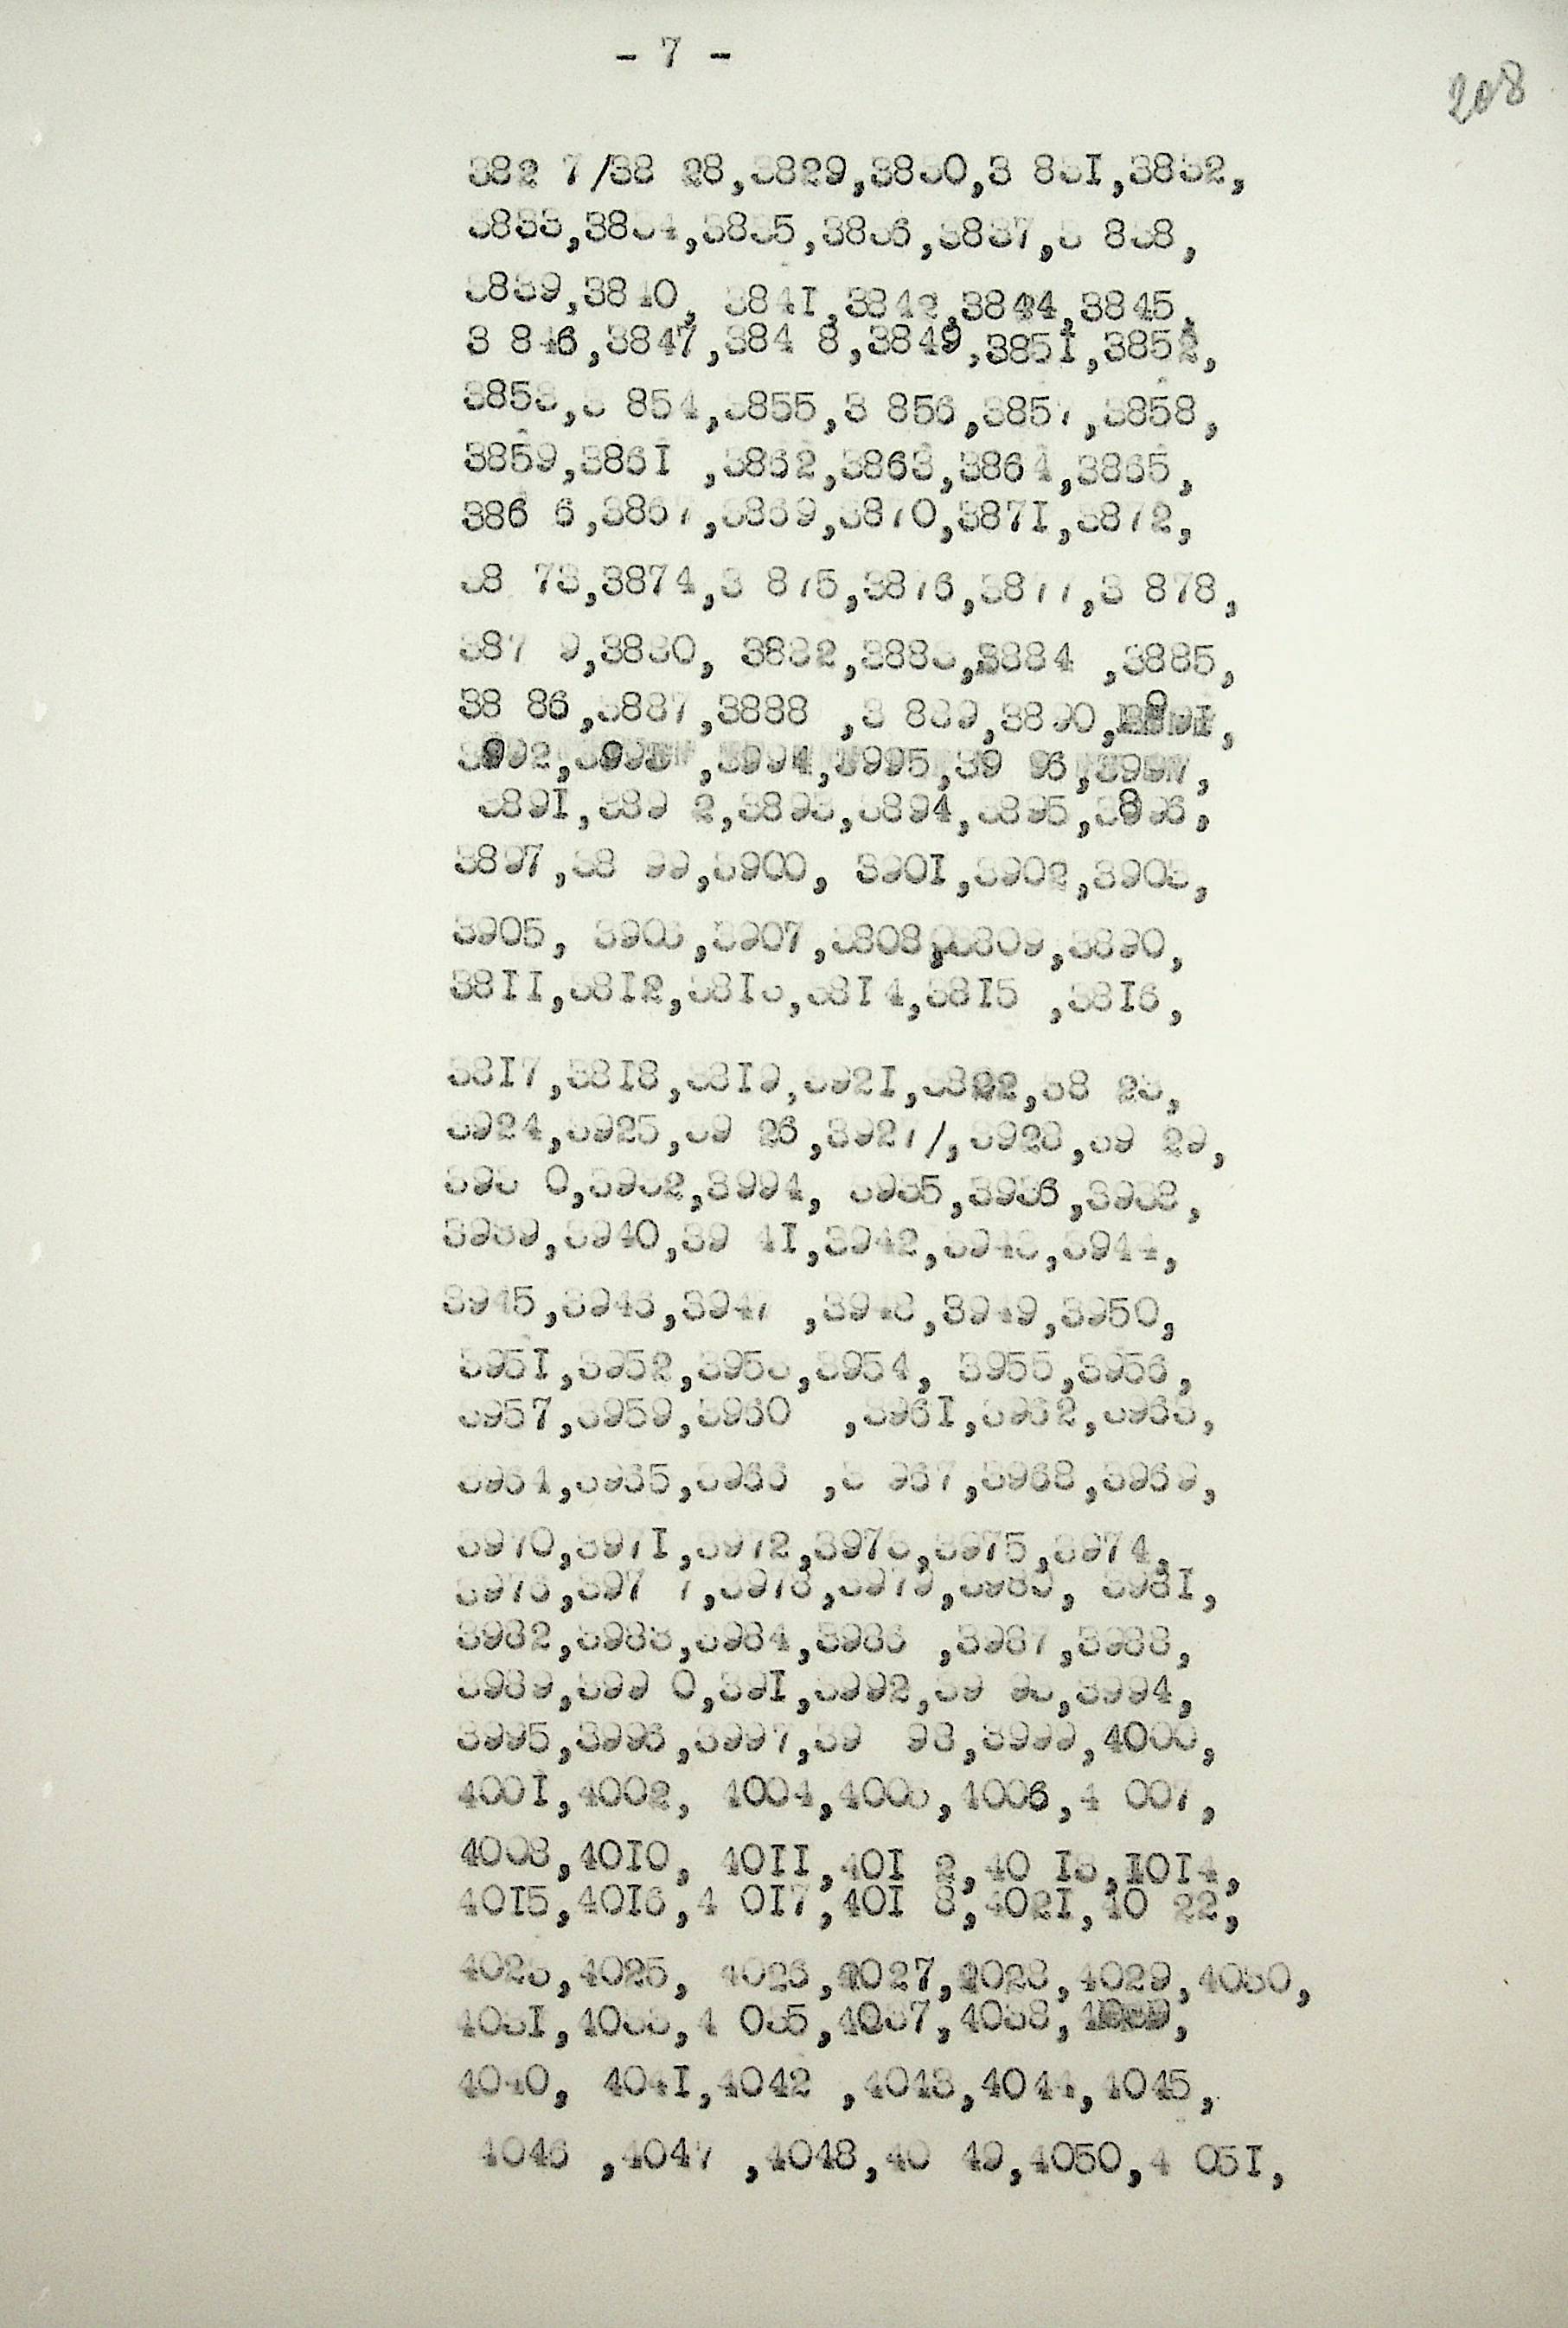 - 7 -
208
382 7/38 28,3829,3830,3 83I,3832,
3833,3834,3835,3836,3837,3 838,
3839,3840, 384I,3842,3844,3845,
3 846,3847,384 8,3849,385I,3852,
3853,3 854,3855,3 856,3857,3858,
3859,386I ,3862,3863,3864,3865,
386 6,3867,3869,3870,387I,3872,
38 73,3874,3 875,3876,3877,3 878,
387 9,3880, 3882,3883,3884 ,3885,
38 86,3887,3888 ,3 889,3890,
3992,3993 ,3994,3995,39 96,3997,
389I,389 2,3893,3894,3895,3896,
3897,38 99,3900, 390I,3902,3903,
3905, 3906,3907,3808,3809,3890,
38II,38I2,38I3,38I4,38I5 ,38I6,
38I7,38I8,38I9,392I,3822,38 23,
3924,3925,39 26,3927/,3928,39 29,
393 0,3932,3994, 3935,3936,3938,
3939,3940,39 4I,3942,3943,3944,
3945,3946,3947 ,3948,3949,3950,
395I,3952,3953,3954, 3955,3956,
3957,3959,3960 ,396I,3962,3963,
3964,3965,3966 ,3 967,3968,3969,
3970,397I,3972,3973,3975,3974,
3976,397 7,3978,3979,3980, 398I,
3982,3983,3984,3986 ,3987,3988,
3989,399 0,39I,3992,39 93,3994,
3995,3996,3997,39 98,3999,4000,
400I,4002, 4004,4005,4006,4 007,
4008,40I0, 40II,40I 2,40 I3,40I4,
40I5,40I6,4 0I7,40I 8,402I,40 22,
4023,4025, 4026,4027,4028,4029,4030,
403I,4033,4 035,4037,4038,4039,
4040, 404I,4042 ,4043,4044,4045,
4046 ,4047 ,4048,40 49,4050,4 05I,